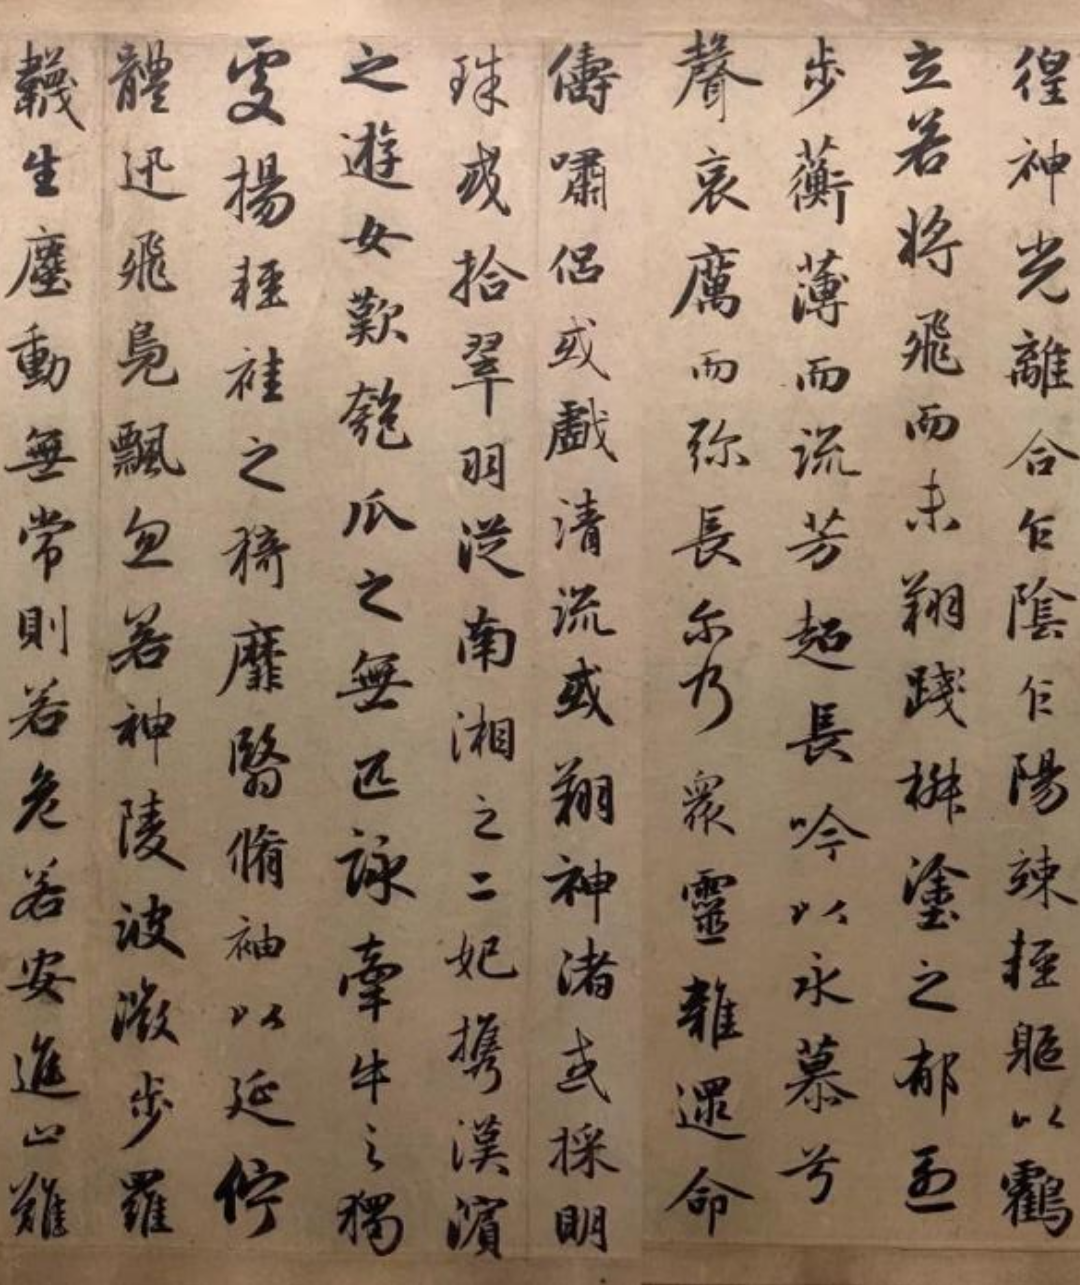 徨神光離合乍陰乍陽竦輕軀以鶴
立若將飛而未翔踐椒塗之郁烈
步蘅薄而流芳超長吟以永慕兮
聲哀厲而弥長尓乃衆靈雜遝命
儔嘯侶或戲清流或翔神渚或採明
珠或拾翠羽從南湘之二妃攜漢濱
之遊女歎匏瓜之無匹詠牽牛之獨
處揚輕袿之猗靡翳脩袖以延佇
體迅飛鳧飄忽若神陵波微步羅
韈生塵動無常則若危若安進止難